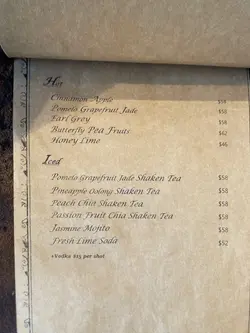 Hot
Cinnamon Apple $58
Pomelo Grapefruit Jade $58
Earl Grey $58
Butterfly Pea Fruits $62
Honey Lime $46
Iced
Pomelo Grapefruit Jade Shaken Tea $58
Pineapple Oolong Shaken Tea $58
Peach Chia Shaken Tea $58
Passion Fruit Chia Shaken Tea $58
Jasmine Mojito $58
Fresh Lime Soda $52
+Vodka $15 per shot